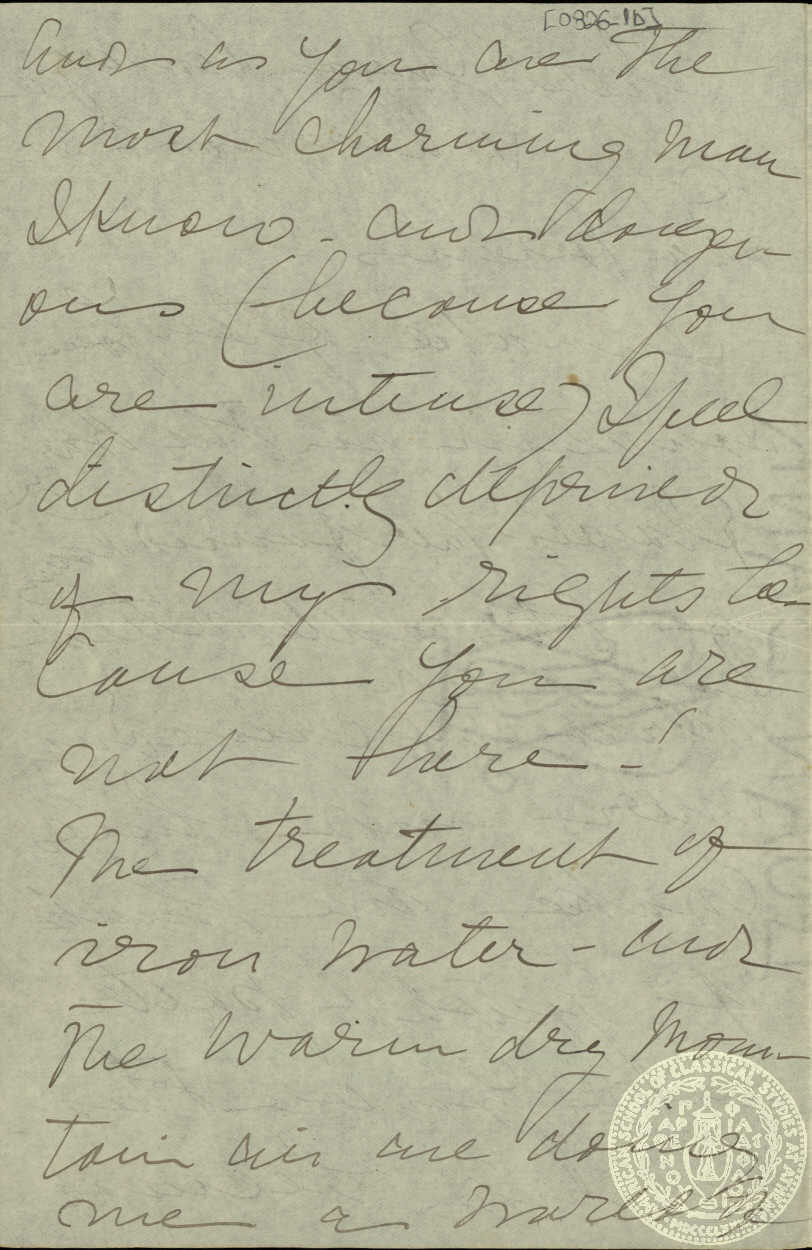 [0826-1D]
and as you are the
most charming man
I know - and danger
ous (because you
are intense) I feel
distinctly deprived
of my rights be-
cause you are
not here - !
The treatment of
iron water - and
the warm dry moun-
tain air are doing
me a world of
AMERICAN SCHOOL OF CLASSICAL STUDIES AT ATHENS
ΠΑΡΘΕΝΟΥ
ΦΙΛΑΣ
MDCCCLXXXI